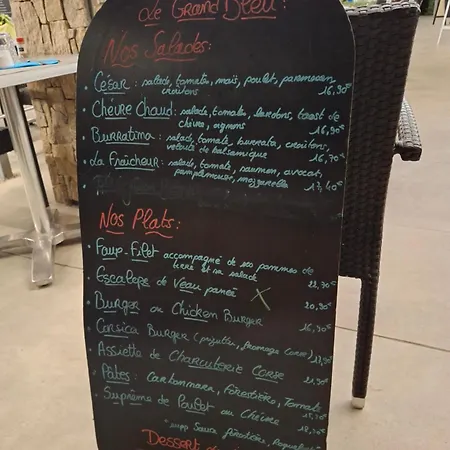 Le Grand Bleu:
Nos Salades:
• César : salade, tomates, maïs, poulet, parmesan
croûtons 16,90€
• Chèvre Chaud : salade, tomate, lardons, toast de
chèvre, oignons 16,90€
• Burratina : salade, tomate, burrata, croûtons,
velouté de balsamique 16,70€
• La Fraîcheur : salade, tomate, saumon, avocat,
pamplemousse, mozzarella 17,40€
Nos Plats :
• Faux-Filet accompagné de ses pommes de
terre et sa salade 22,30€
• Escalope de Veau panée X 20,90€
• Burger ou Chicken Burger 16,90€
• Corsica Burger (prizuttu, fromage Corse)
• Assiette de Charcuterie Corse 21,90€
• Pâtes : Carbonnara, Forestière, Tomate
• Suprême de Poulet ou Chèvre
*supp Sauce
Dessert